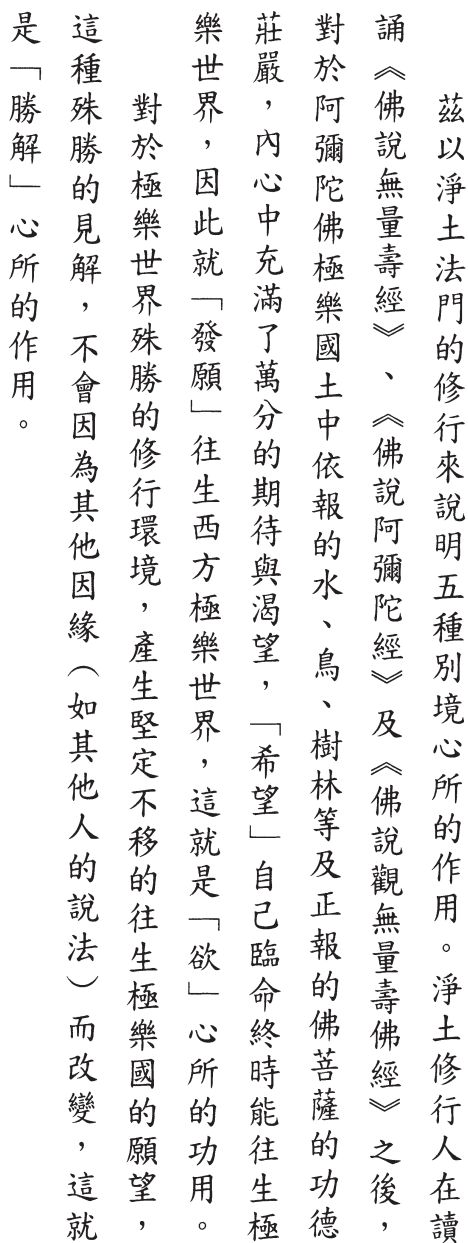 茲以淨土法門的修行來說明五種別境心所的作用。淨土修行人在讀
誦《佛說無量壽經》、《佛說阿彌陀經》及《佛說觀無量壽佛經》之後，
對於阿彌陀佛極樂國土中依報的水、鳥、樹林等及正報的佛菩薩的功德
莊嚴，內心中充滿了萬分的期待與渴望，「希望」自己臨命終時能往生極
樂世界，因此就「發願」往生西方極樂世界，這就是「欲」心所的功用。
對於極樂世界殊勝的修行環境，產生堅定不移的往生極樂國的願望，
這種殊勝的見解，不會因為其他因緣（如其他人的說法）而改變，這就
是「勝解」心所的作用。